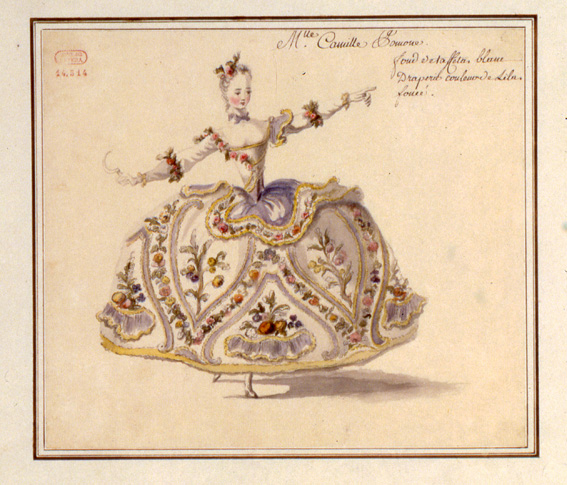 Mlle Camille Pomone.
fond de taffetas blanc
Draperie couleur de Lilas
foncé.